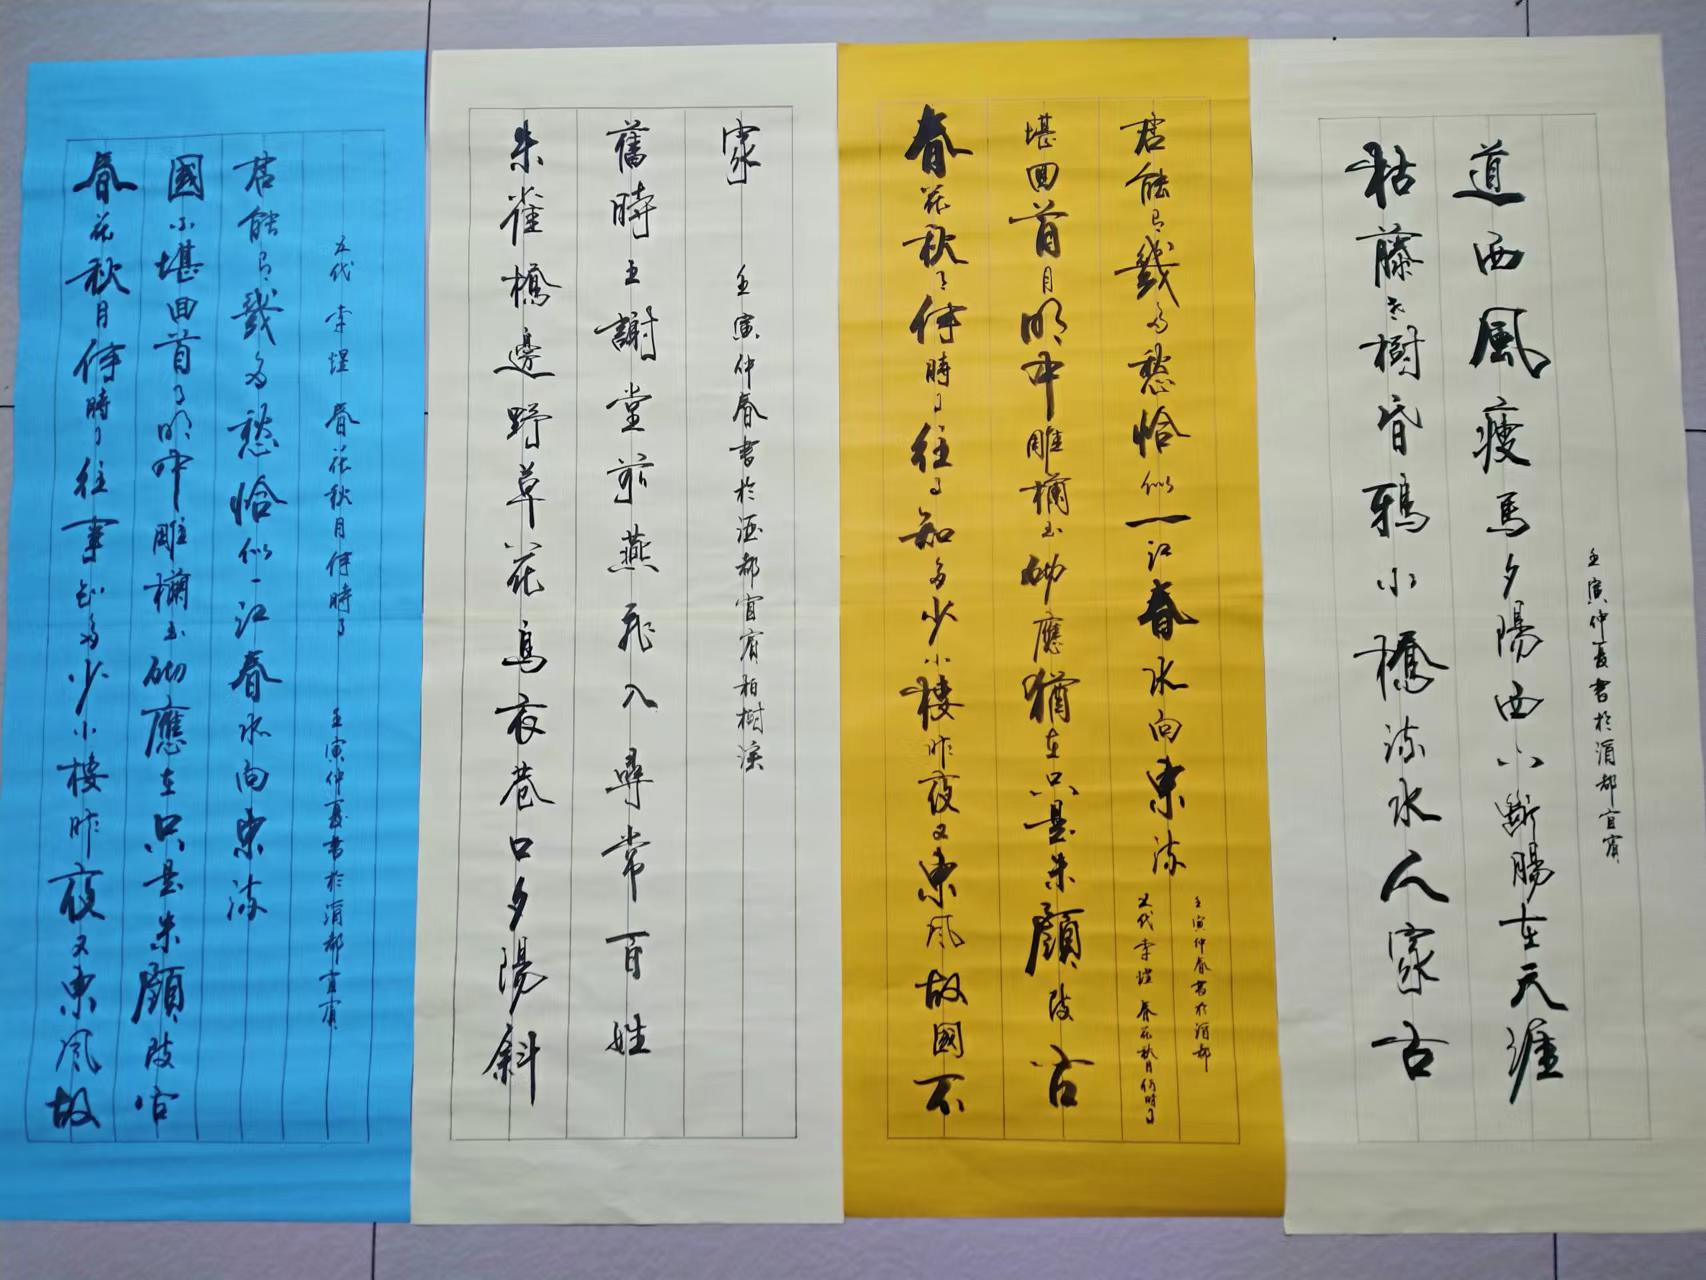 春花秋月何時了往事知多少小樓昨夜又東風故
國不堪回首月明中雕欄玉砌應在只是朱顏改問
君能有幾多愁恰似一江春水向東流
五代 李煜 春花秋月何時了 壬寅仲夏書於酒都宜賓
朱雀橋邊野草花烏衣巷口夕陽斜
舊時王謝堂前燕飛入尋常百姓
家 壬寅仲春書於酒都宜賓柏樹溪
春花秋月何時了往事知多少小樓昨夜又東風故國不
堪回首月明中雕欄玉砌應猶在只是朱顏改問
君能有幾多愁恰似一江春水向東流
五代李煜 春花秋月何時了
壬寅仲春書於酒都
枯藤老樹昏鴉小橋流水人家古
道西風瘦馬夕陽西下斷腸在天涯
壬寅仲夏書於酒都宜賓